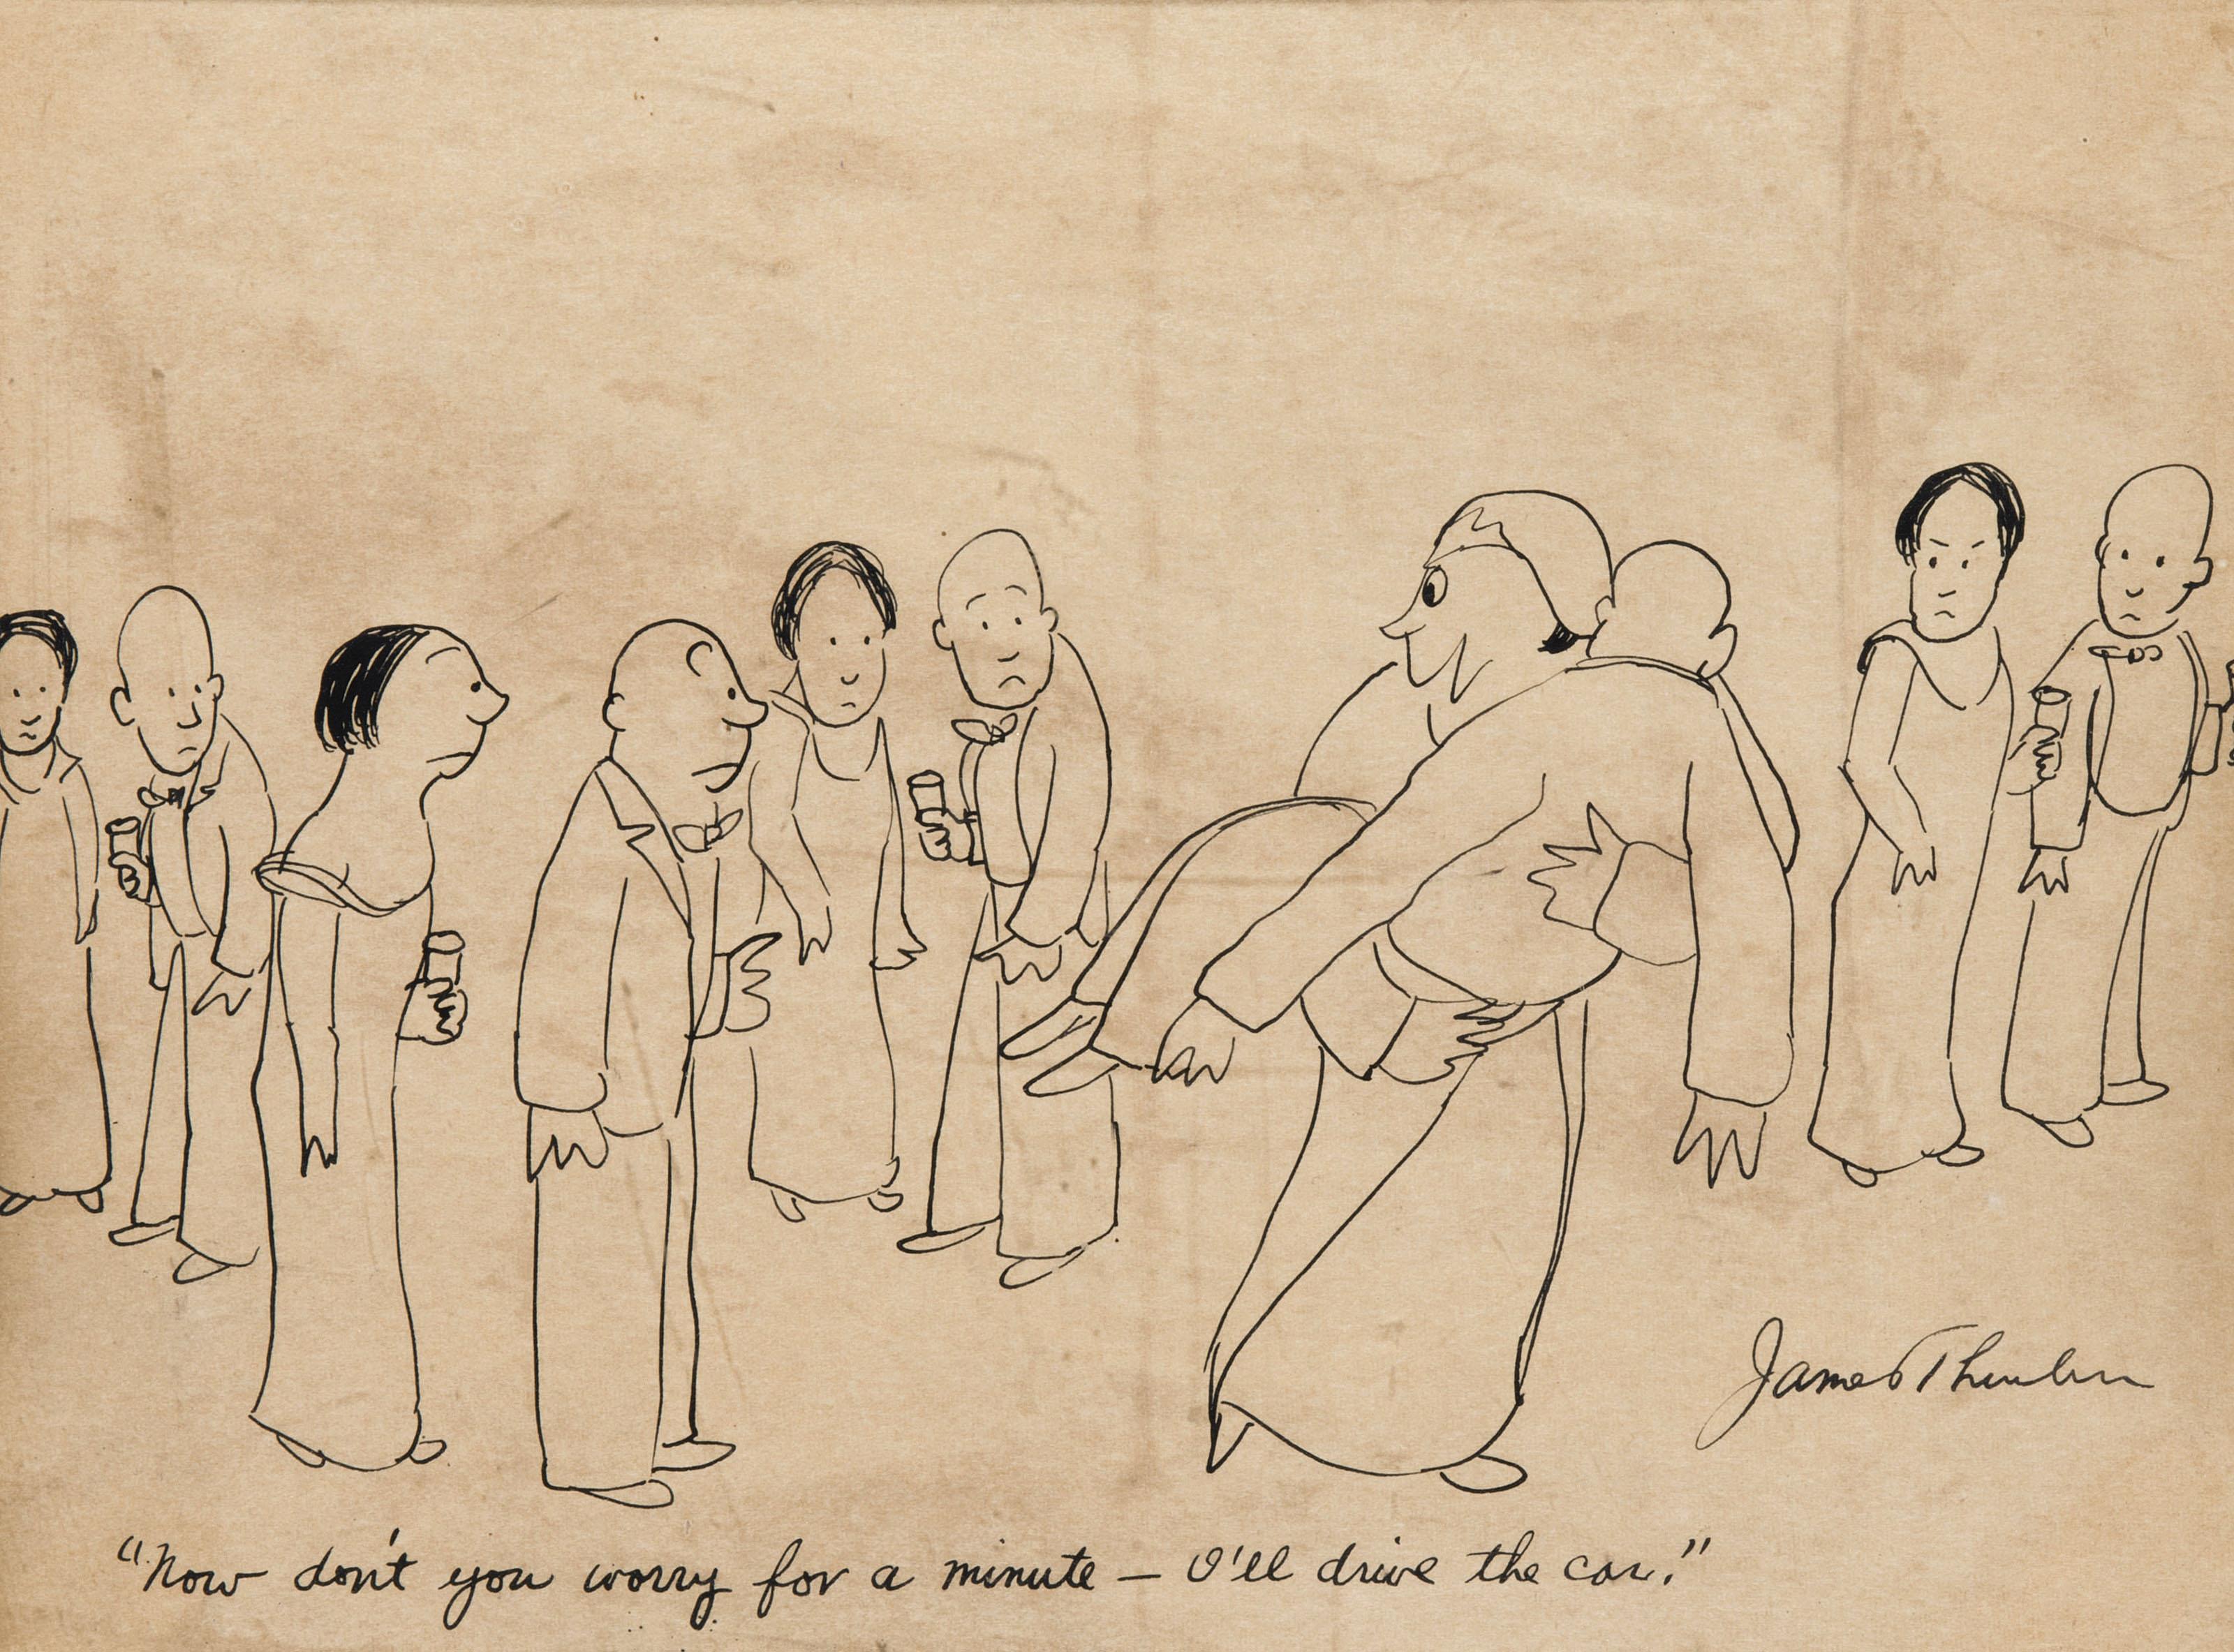 James Thurber
"Now don't you worry for a minute — I'll drive the car."